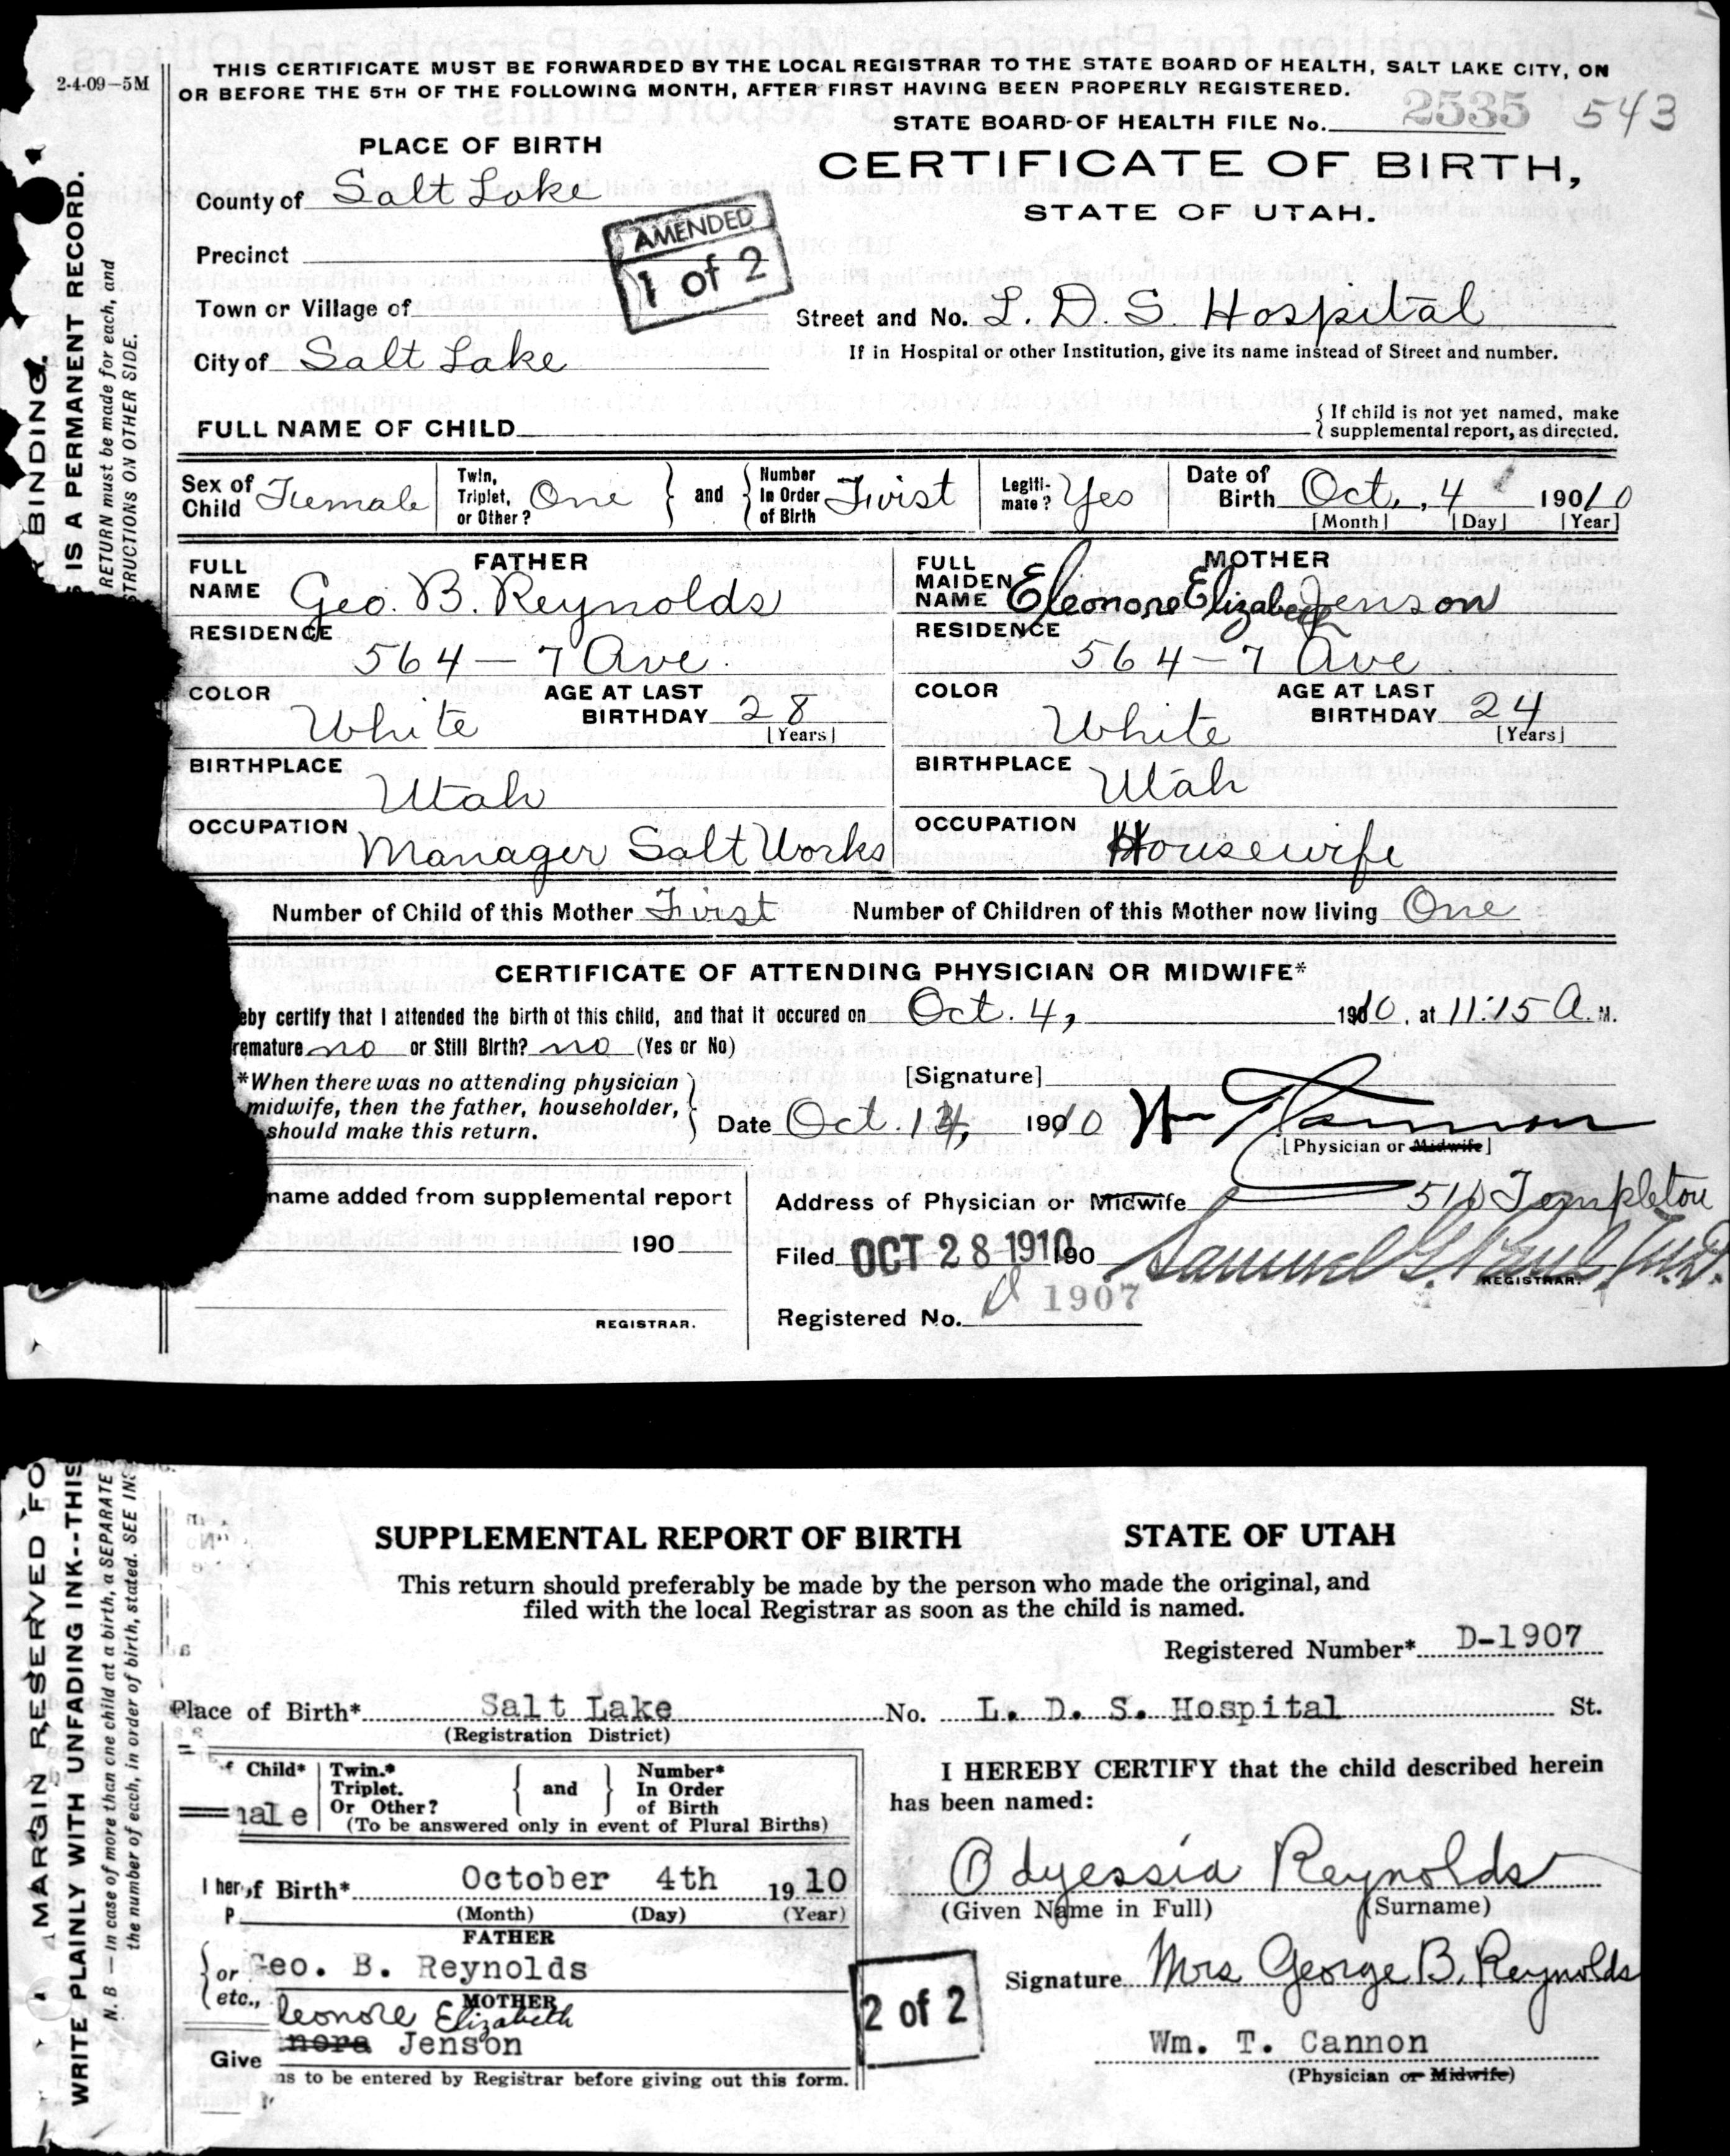 2-4-09—5M
THIS CERTIFICATE MUST BE FORWARDED BY THE LOCAL REGISTRAR TO THE STATE BOARD OF HEALTH, SALT LAKE CITY, ON
OR BEFORE THE 5TH OF THE FOLLOWING MONTH, AFTER FIRST HAVING BEEN PROPERLY REGISTERED.
STATE BOARD OF HEALTH FILE No. 2535 543
PLACE OF BIRTH
CERTIFICATE OF BIRTH,
STATE OF UTAH.
County of Salt Lake
AMENDED
1 of 2
Precinct
Town or Village of
Street and No. L. D. S. Hospital
If in Hospital or other Institution, give its name instead of Street and number.
City of Salt Lake
FULL NAME OF CHILD
{ If child is not yet named, make
supplemental report, as directed.
Sex of Child Female
Twin, Triplet, or Other? One } and { Number In Order of Birth First
Legiti-mate? Yes
Date of Birth Oct., 4 1910
[Month] [Day] [Year]
FATHER
FULL NAME Geo. B. Reynolds
MOTHER
FULL MAIDEN NAME Eleonore Elizabeth Jenson
RESIDENCE 564 — 7 Ave.
RESIDENCE 564 — 7 Ave
COLOR White AGE AT LAST BIRTHDAY 28 [Years]
COLOR White AGE AT LAST BIRTHDAY 24 [Years]
BIRTHPLACE Utah
BIRTHPLACE Utah
OCCUPATION Manager Salt Works
OCCUPATION Housewife
Number of Child of this Mother First Number of Children of this Mother now living One
CERTIFICATE OF ATTENDING PHYSICIAN OR MIDWIFE*
eby certify that I attended the birth of this child, and that it occured on Oct. 4, 1910, at 11:15 A. M.
remature no or Still Birth? no (Yes or No)
*When there was no attending physician
midwife, then the father, householder,
should make this return.
[Signature]
Date Oct. 14, 1910 Wm T Cannon
[Physician or Midwife]
name added from supplemental report
190
REGISTRAR.
Address of Physician or Midwife 510 Templeton
Filed OCT 28 1910 190 Samuel G. Paul, M.D.
REGISTRAR.
Registered No. D 1907
R BINDING.
S IS A PERMANENT RECORD.
RETURN must be made for each, and
STRUCTIONS ON OTHER SIDE.
MARGIN RESERVED FO
WRITE PLAINLY WITH UNFADING INK--THIS
N. B — In case of more than one child at a birth, a SEPARATE
the number of each, in order of birth, stated. SEE INS
SUPPLEMENTAL REPORT OF BIRTH STATE OF UTAH
This return should preferably be made by the person who made the original, and
filed with the local Registrar as soon as the child is named.
Registered Number* D-1907
Place of Birth* Salt Lake No. L. D. S. Hospital St.
(Registration District)
f Child* male
Twin.* Triplet. Or Other? { and } Number* In Order of Birth
(To be answered only in event of Plural Births)
I HEREBY CERTIFY that the child described herein
has been named:
Odyessia Reynolds
(Given Name in Full) (Surname)
I her of Birth* October 4th 1910
P (Month) (Day) (Year)
FATHER
or Geo. B. Reynolds
etc.,
MOTHER
leonore Elizabeth
nora Jenson
Give
ns to be entered by Registrar before giving out this form.
2 of 2
Signature Mrs George B. Reynolds
Wm. T. Cannon
(Physician or Midwife)